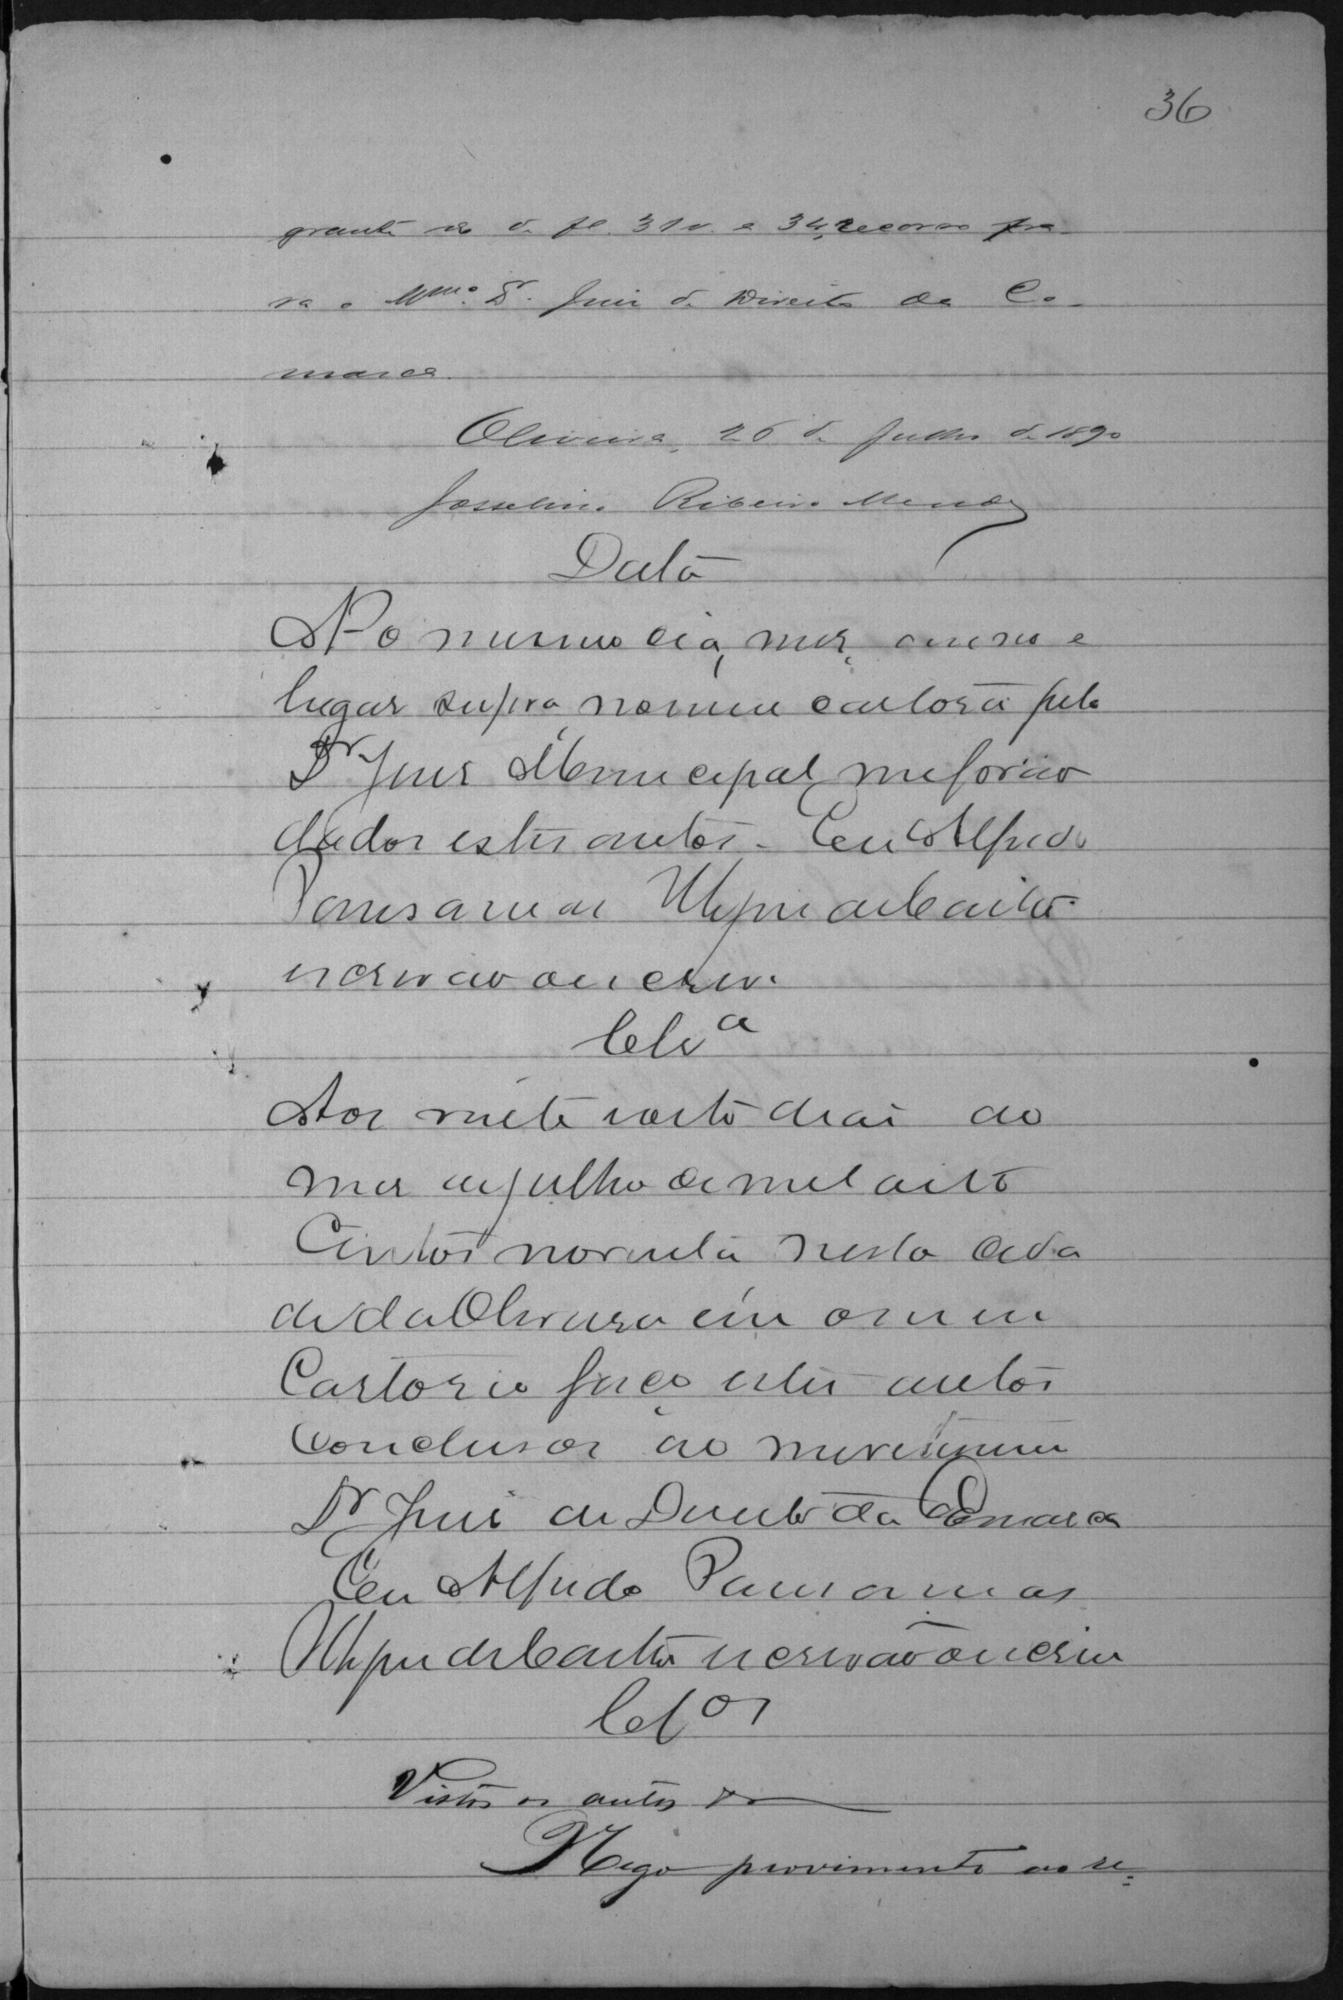 36
grante no de fl. 31v. e 34, recorro pa-
ra o Mmo. Dr. Juiz de Direito da Co-
marca.
Oliveira, 26 de Julho de 1890
Josselino Ribeiro Mendes
Data
No mesmo dia, mez, anno e
lugar supra, no meu cartorio pelo
Dr Juiz Municipal me forão
dados estes autos. Eu Alfredo
de Castro
escrivão o escrevi.
Clsa
Aos vinte e oito dias do
mez de julho de mil oito
Centos noventa nesta cida
de da Oliveira em o meu
Cartorio faço estes autos
Conclusos ao meretissimo
Dr Juiz de Direito da Comarca
Eu Alfredo
de Castro escrivão o escrevi
Clsos
Vistos os autos &
Nego provimento ao re-